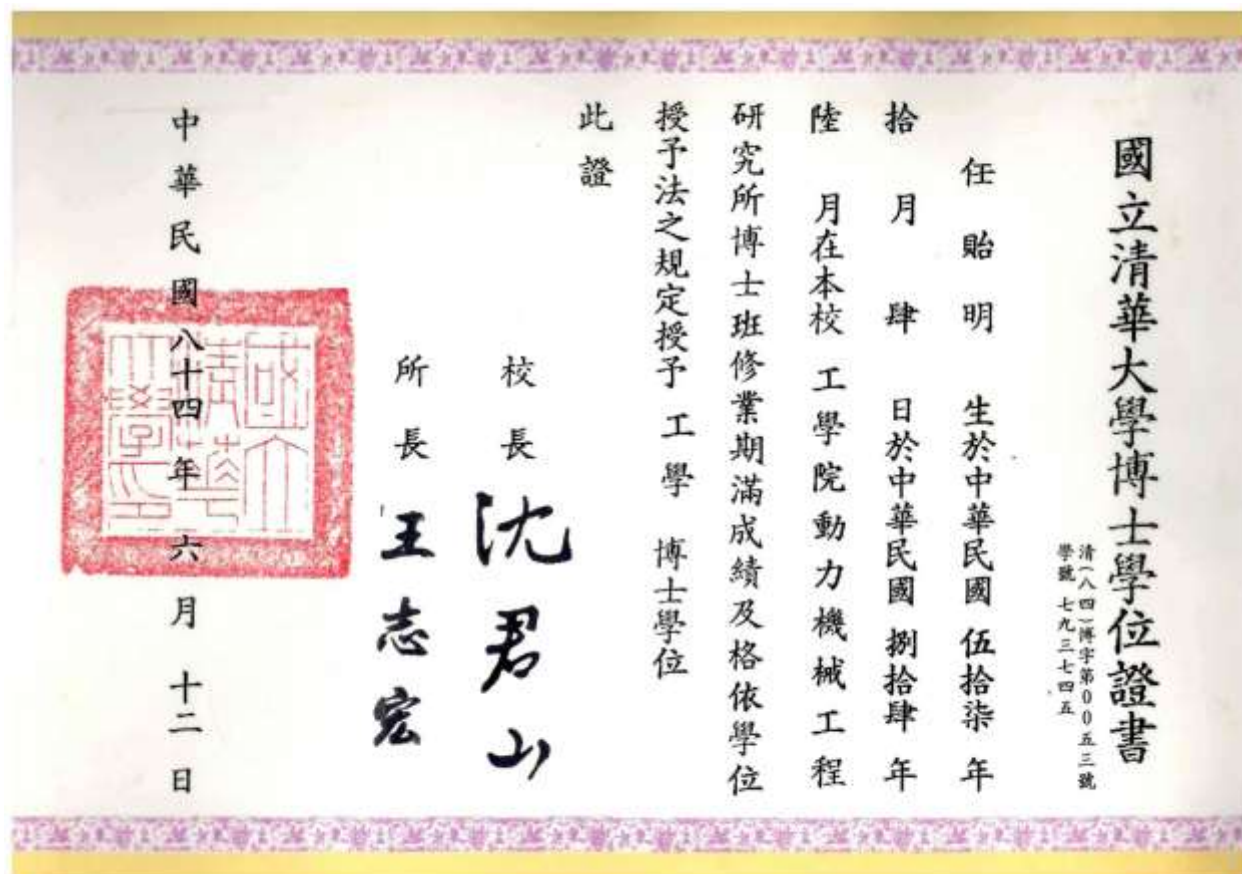 國立清華大學博士學位證書
清(八四)博字第００五三號
學號 七九三七四五
任貽明 生於中華民國 伍拾柒年
拾月 肆 日於中華民國 捌拾肆年
陸 月在本校 工學院動力機械工程
研究所博士班修業期滿成績及格依學位
授予法之規定授予 工學 博士學位
此證
校長 沈君山
所長 王志宏
中華民國八十四年 六 月 十二 日
國立清華大學印